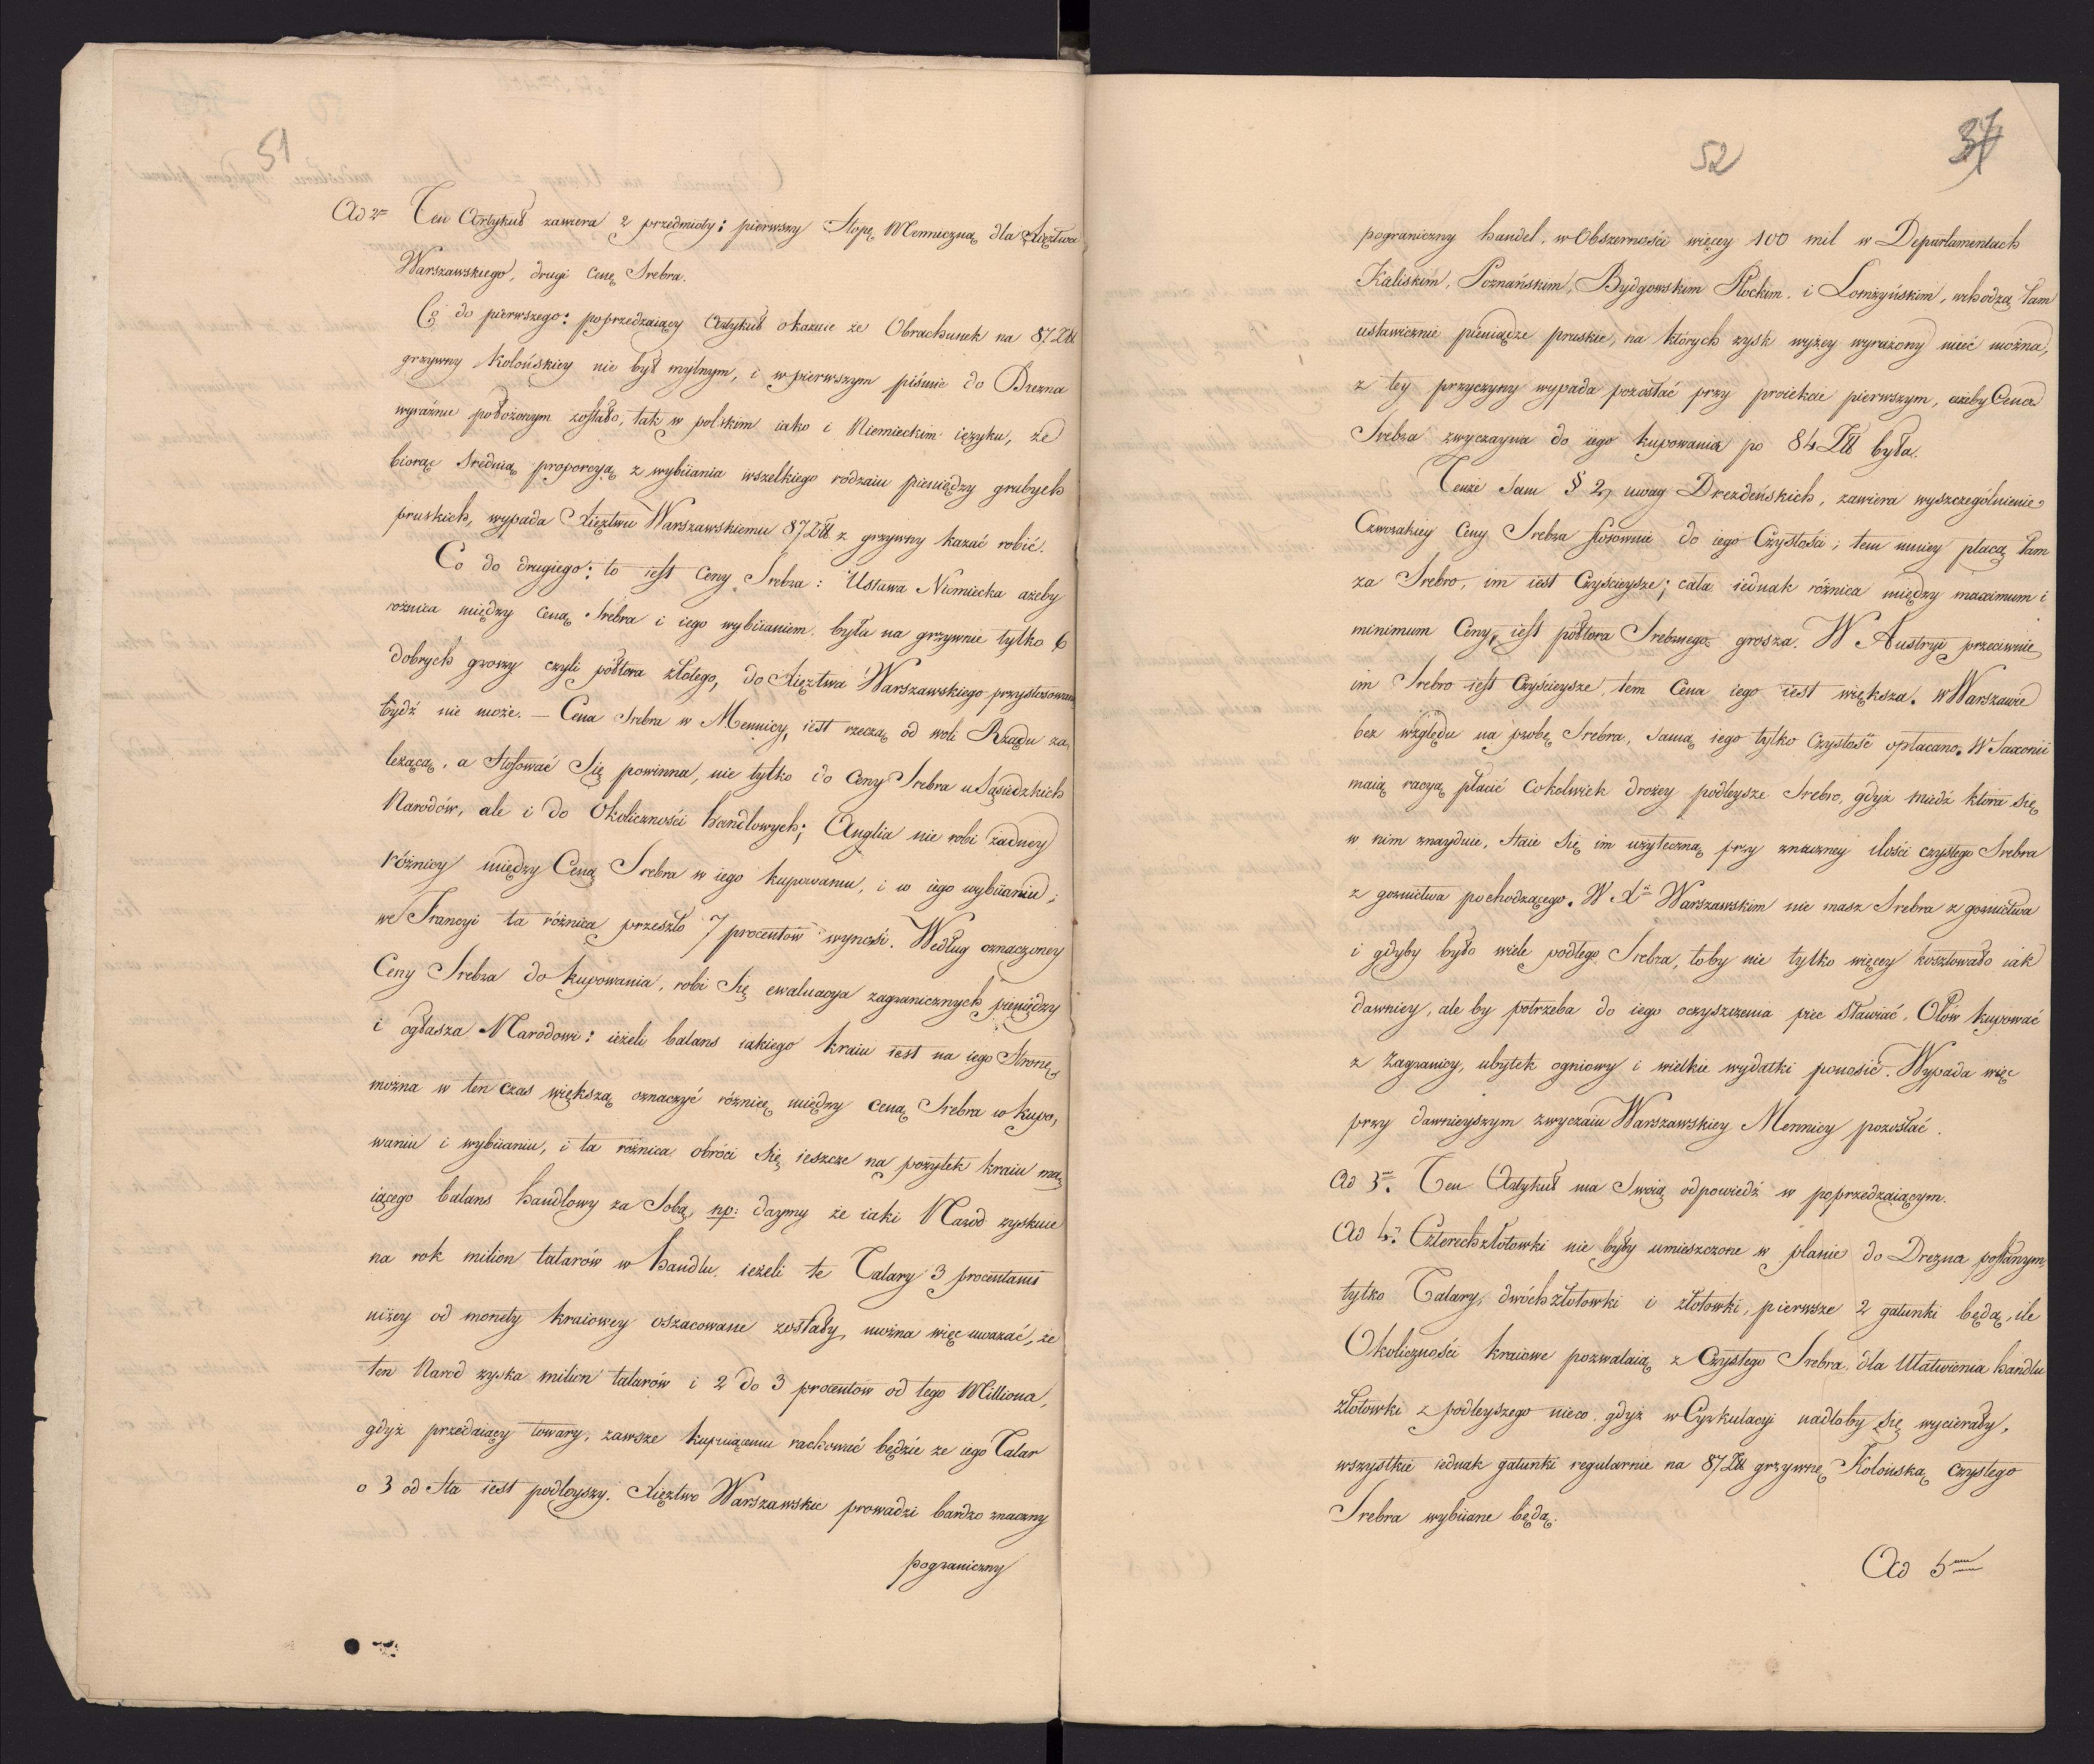 51
Ad 2m Ten Artykuł zawiera 2 przedmioty: pierwszy Stopę Menniczną dla Xięztwa
Warszawskiego, drugi Cenę Srebra.
Co do pierwszego: poprzedzaiący Artykuł okazuie że Obrachunek na 87 Zł
grzywny Kolońskiey nie był mylnym, i w pierwszym piśmie do Drezna
wyraźnie położonym zostało, tak w polskim iako i Niemieckim ięzyku, że
biorąc Srednią proporcyą z wybiiania wszelkiego rodzaiu pieniędzy grubych
pruskich, wypada Xięztwu Warszawskiemu 87 Zł z grzywny kazać robić.
Co do drugiego: to iest Ceny Srebra: Ustawa Niemiecka ażeby
roznica między Ceną Srebra i iego wybiianiem była na grzywnie tylko 6
dobrych groszy czyli półtora złotego, do Xięztwa Warszawskiego przystosowaną
bydź nie może. — Cena Srebra w Mennicy, iest rzeczą od woli Rządu za,
leżącą, a Stosować Się powinna, nie tylko do Ceny Srebra u Sąsiedzkich
Narodów, ale i do Okoliczności handlowych; Anglia nie robi żadney
różnicy między Ceną Srebra w iego kupowaniu, i w iego wybiianiu;
we Francyi ta różnica przeszło 7 procentow wynosi. Według oznaczoney
Ceny Srebra do kupowania, robi Się ewaluacya zagranicznych pieniędzy
i ogłasza Narodowi: ieżeli balans iakiego kraiu iest na iego Stronę,
można w ten czas większą oznaczyć różnicę między ceną Srebra w kupo,
waniu i wybiianiu, i ta różnica obróci Się ieszcze na pożytek kraiu ma,
iącego balans handlowy za Sobą, np: daymy że iaki Narod zyskuie
na rok milion talarów w handlu, ieżeli te Talary 3 procentami
niżey od monety kraiowey oszacowane zostały, można więc uważać, że
ten Narod zyska milion talarów i 2 do 3 procentow od tego Milliona,
gdyż przedaiący towary, zawsze kupuiącemu rachować będzie że iego Talar
o 3 od Sta iest podleyszy. Xięztwo Warszawskie prowadzi bardzo znaczny
pograniczny
52
pograniczny handel, w Obszerności więcey 100 mil w Departamentach
Kaliskim, Poznańskim, Bydgowskim Płockim, i Lomżyńskim, wchodzą tam
ustawicznie pieniądze pruskie, na których zysk wyżey wyrażony mieć można,
z tey przyczyny wypada pozostać przy proiekcie pierwszym, ażeby Cena
Srebra zwyczayna do iego kupowania po 84 Zł była.
Tenże Sam § 2, uwag Drezdeńskich, zawiera wyszczególnienie
Czworakiey Ceny Srebra stosownie do iego Czystości; tem mniey płacą tam
za Srebro, im iest Czyścieysze; cała iednak różnica między maximum i
minimum Ceny, iest półtora Srebrnego grosza. W Austryi przeciwnie
im Srebro iest Czyścieysze, tem Cena iego iest większa. W Warszawie
bez względu na probę Srebra, Samą iego tylko Czystość opłacano. W Saxonii
maią racyą płacić Cokolwiek drożey podleysze Srebro, gdyż miedź ktora się
w nim znayduie, Staie Się im użyteczną przy znaczney ilości czystego Srebra
z gornictwa pochodzącego. W Xie Warszawskim nie masz Srebra z gornictwa
i gdyby było wiele podłego Srebra, to by nie tylko więcey kosztowało iak
dawniey, ale by potrzeba do iego oczyszczenia piec Stawiać, Ołow kupować
z Zagranicy, ubytek ogniowy i wielkie wydatki ponosić. Wypada więc
przy dawnieyszym zwyczaiu Warszawskiey Mennicy pozostać.
Ad 3m. Ten Artykuł ma Swoią odpowiedź w poprzedzaiącym.
Ad 4m. Czterechzłotowki nie były umieszczone w planie do Drezna posłanym,
tylko Talary, dwóchzłotowki i złotowki, pierwsze 2 gatunki będą, ile
Okoliczności kraiowe pozwalaią z Czystego Srebra, dla Ułatwienia handlu
złotowki z podleyszego nieco, gdyż w Cyrkulacyi nadtoby się wycierały,
wszystkie iednak gatunki regularnie na 87 Zł grzywnę Kolońską czystego
Srebra wybiiane będą.
Ad 5m